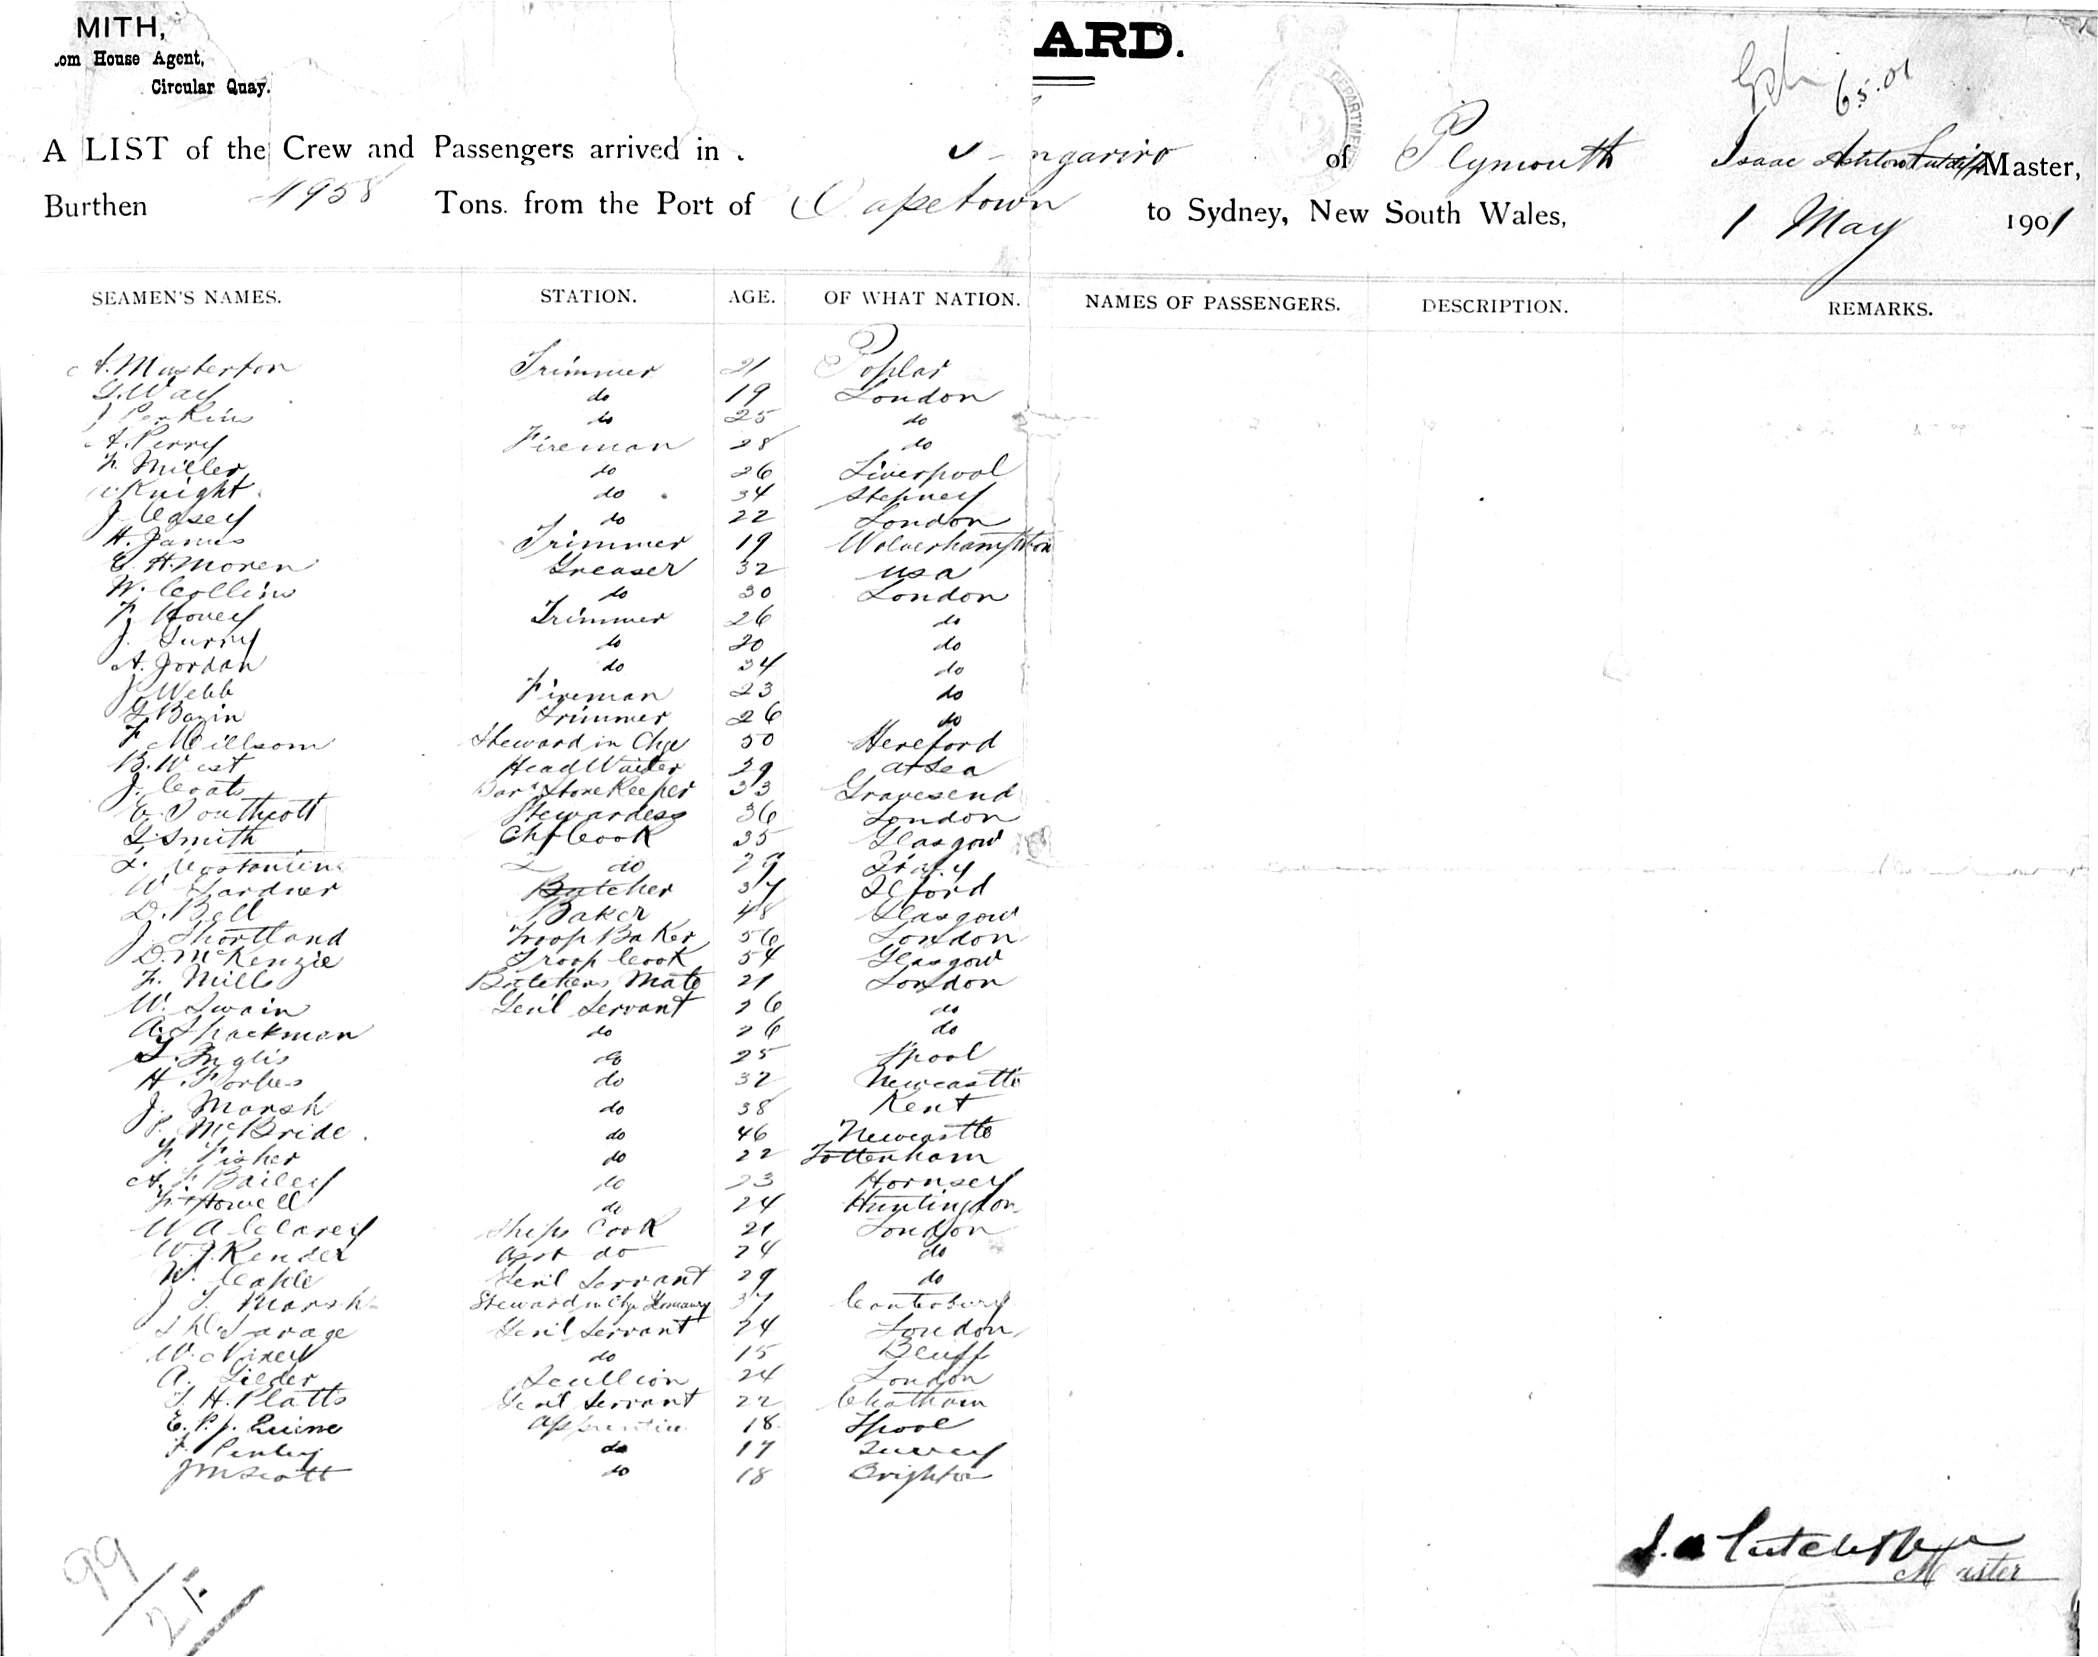 MITH,
ARD.
om House Agent,
Circular Quay.
6.5.01
A LIST of the Crew and Passengers arrived in ngariro of Plymouth Isaac Ashton Sutcliffe Master,
Burthen 4958 Tons. from the Port of Capetown to Sydney, New South Wales, 1 May 1901
SEAMEN'S NAMES. STATION. AGE. OF WHAT NATION. NAMES OF PASSENGERS. DESCRIPTION. REMARKS.
A. Masterton Trimmer 21 Poplar
G. Way do 19 London
J Perkins do 25 do
A. Perry Fireman 28 do
F. Miller do 26 Liverpool
Knight do 34 Stepney
J. Casey do 22 London
H. James Trimmer 19 Wolverhampton
E. H. Moren Greaser 32 USA
W. Collins do 30 London
F. Hovey Trimmer 26 do
J. Gurry do 20 do
A. Jordan do 34 do
J. Webb Fireman 23 do
G. Bazin Trimmer 26 do
F. Millsom Steward in Chge 50 Hereford
B. West Head Waiter 29 at Sea
J. Coats Storekeeper 33 Gravesend
E. Southcott Stewardess 36 London
G. Smith Chf Cook 35 Glasgow
L. Costantini 2 do 29 Italy
W. Gardner Butcher 37 Ilford
D. Bell Baker 48 Glasgow
J. Shortland Troop Baker 56 London
D. McKenzie Troop Cook 54 Glasgow
F. Mills Butchers Mate 21 London
W. Swain Gen'l Servant 26 do
A. Spackman do 26 do
L. Inglis do 25 Lpool
H. Forbes do 32 Newcastle
J. Marsh do 38 Kent
P. McBride. do 46 Newcastle
F. Fisher do 22 Tottenham
A. F. Bailey do 23 Hornsey
F. Howell do 24 Huntingdon
W A Clarey Ships Cook 21 London
W. J. Render Asst do 24 do
W. Caple Gen'l Servant 29 do
J T. Marsh Steward in Chge 37 Canterbury
Savage Gen'l Servant 24 London
W. Nixey do 15 Bluff
A. Lieder Scullion 24 London
T. H. Platts Gen'l Servant 22 Chatham
E. P. J. Quine Apprentice 18 Lpool
F. Penley do 17 Surrey
J M Scott do 18 Brighton
99
21
I. A Sutcliffe
Master